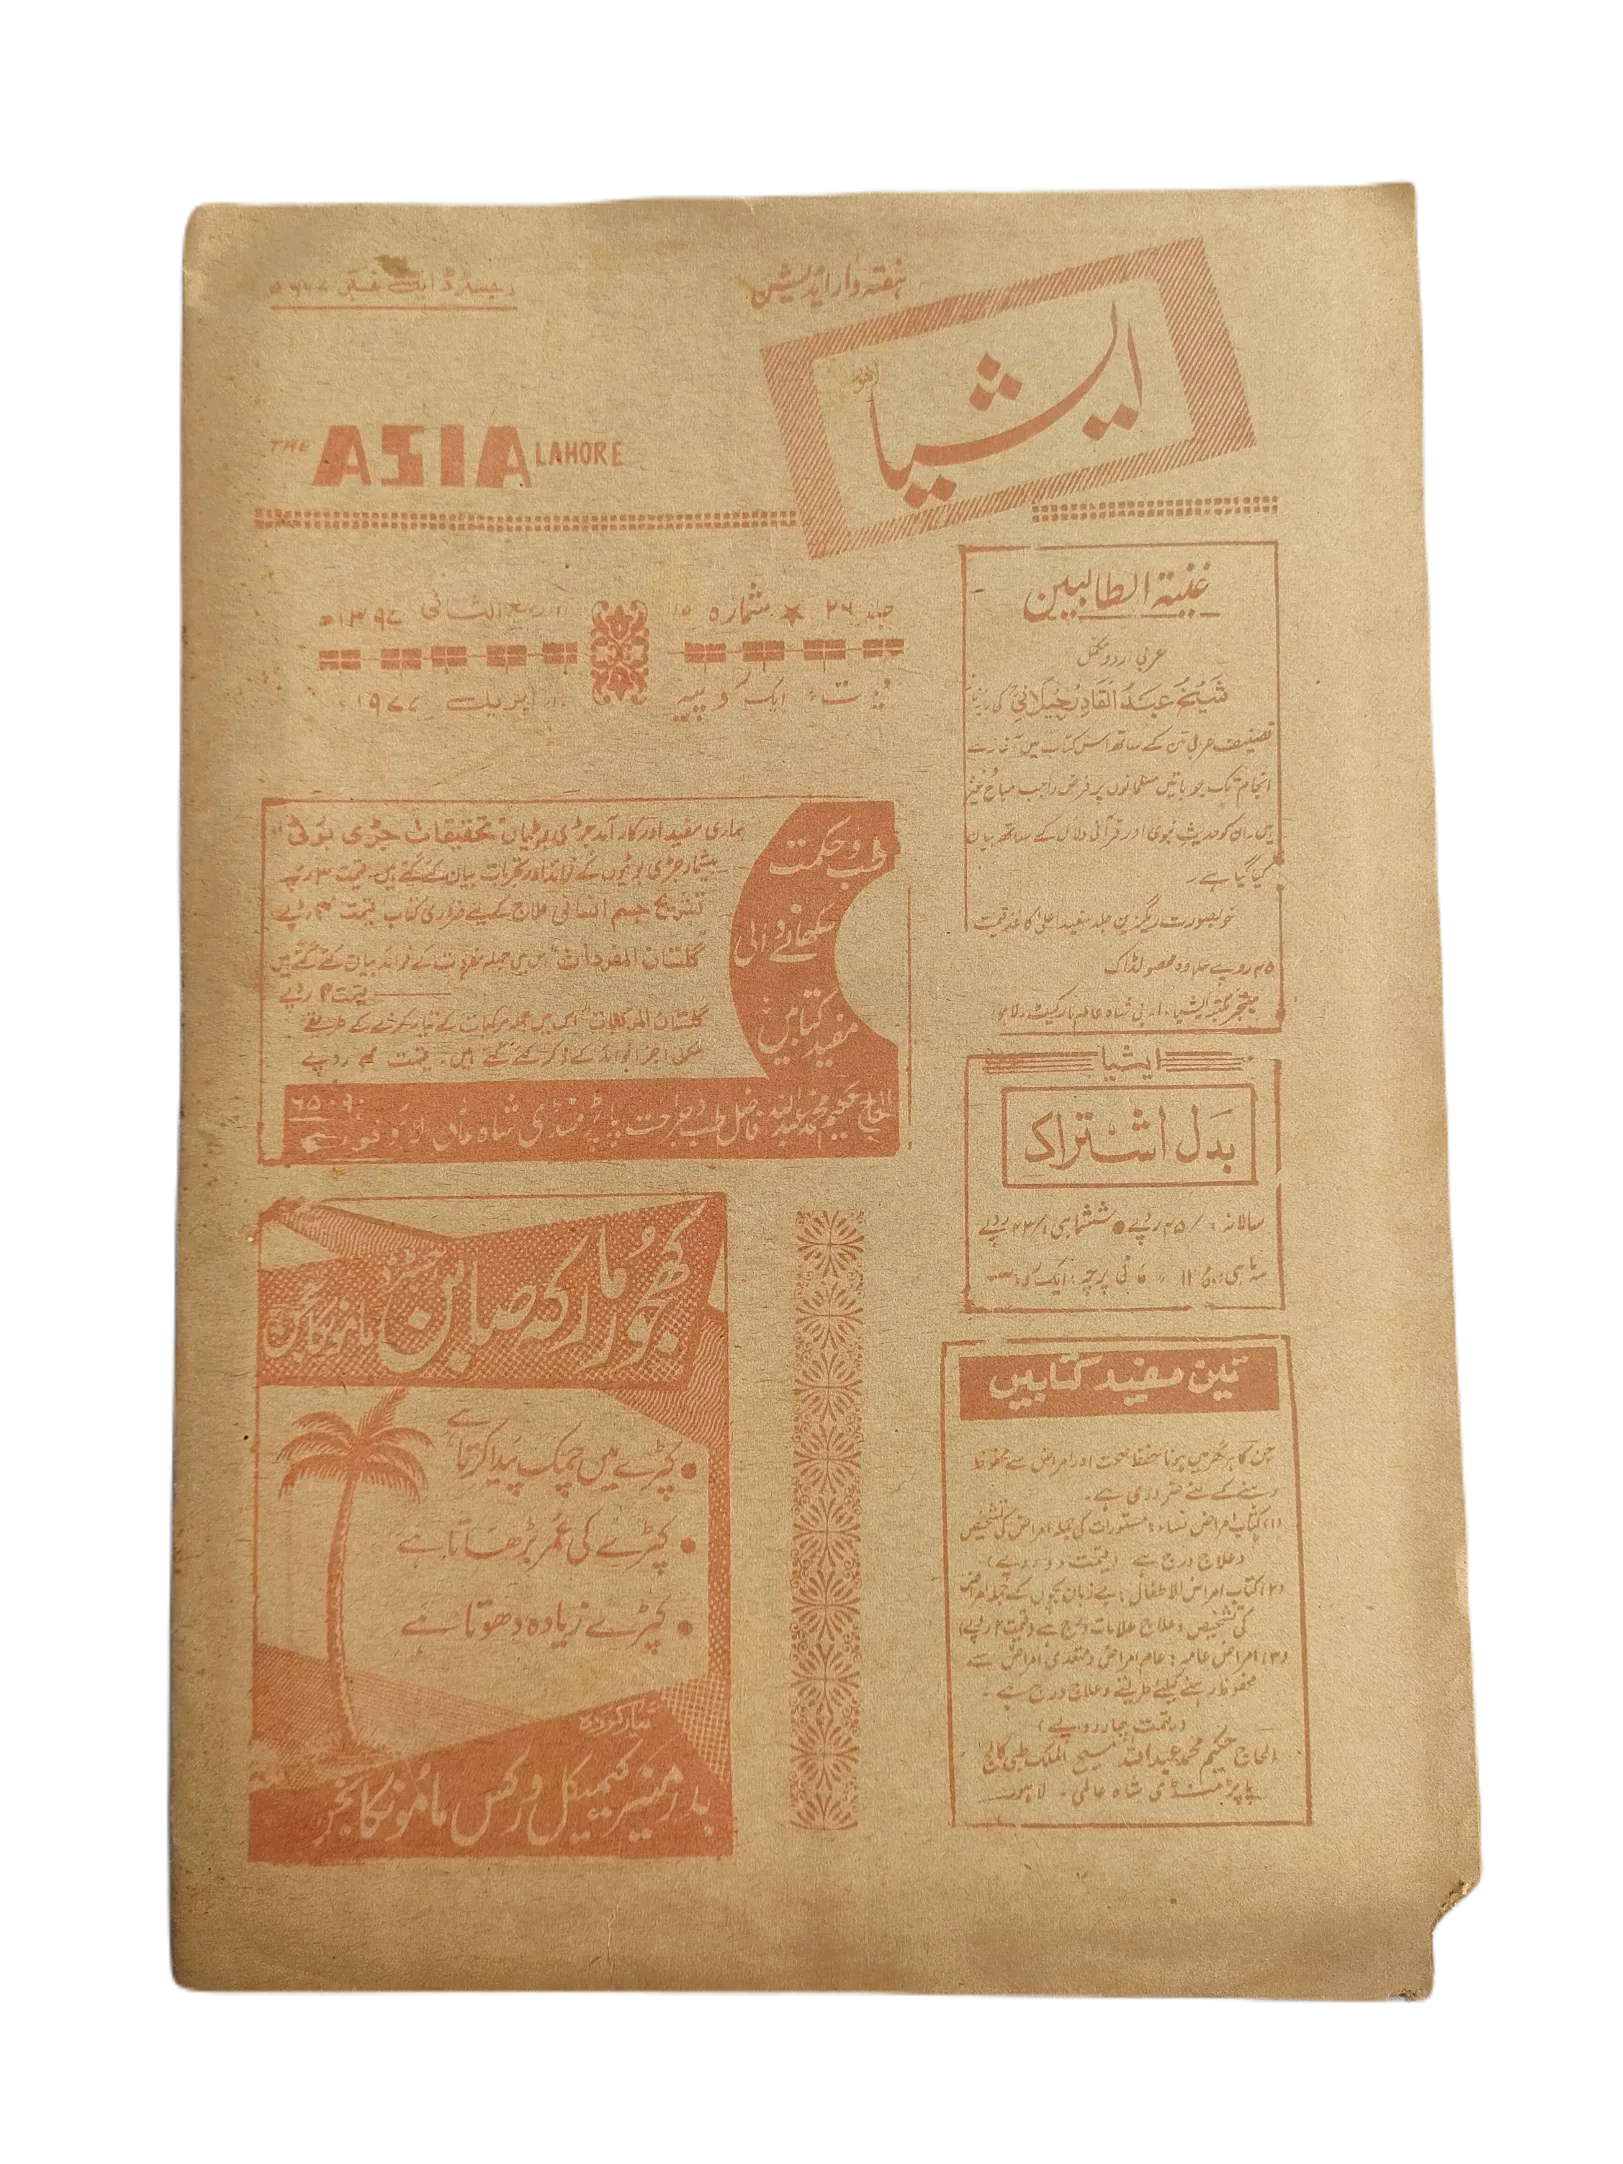 ہفتہ وار ایڈیشن
رجسٹرڈ ایل نمبر ۵۶۶۷
ایشیا
لاہور
THE ASIA LAHORE
جلد ۲۶ ★ شمارہ ۱۵
ربیع الثانی ۱۳۹۷ھ
قیمت ایک روپیہ
اپریل ۱۹۷۷
غنیۃ الطالبین
عربی اردو مکمل
شیخ عبدالقادر جیلانیؒ کی
تصنیف عربی متن کے ساتھ اس کتاب میں آغاز سے
انجام تک جو باتیں مسلمانوں پر فرض واجب مباح
ہیں ان کو حدیث نبوی اور قرآنی دلائل کے ساتھ بیان
کیا گیا ہے۔
خوبصورت ریگزین جلد سفید اعلیٰ کاغذ قیمت
۴۵ روپے علاوہ محصولڈاک
منیجر مکتبہ ایشیا، شاہ عالم مارکیٹ، لاہور
ایشیا
بدل اشتراک
سالانہ ۴۵/۰ روپے ● ششماہی ۲۳/۱ روپے
سہ ماہی ۱۲ فی پرچہ: ایک روپیہ
تین مفید کتابیں
جن کا ہر گھر میں ہونا حفظ صحت اور امراض سے محفوظ
رہنے کے لئے ضروری ہے۔
(۱) کتاب امراض نساء: مستورات کی جملہ امراض کی تشخیص
و علاج درج ہے (قیمت دو روپے)
(۲) کتاب امراض الاطفال: بے زبان بچوں کے جملہ امراض
کی تشخیص و علاج علامات درج ہے (قیمت ۲ روپے)
(۳) امراض عامہ: عام امراض و متعدی امراض سے
محفوظ رہنے کیلئے طریقے و علاج درج ہے۔
(قیمت چار روپے)
الحاج حکیم محمد عبداللہ مسیح الملک طبی کالج
پاپڑ منڈی شاہ عالمی۔ لاہور
طب و حکمت
سکھانے والی
مفید کتابیں
ہماری مفید اور کار آمد جڑی بوٹیاں "تحقیقات جڑی بوٹی"
بیشمار جڑی بوٹیوں کے فوائد اور تجربات بیان کئے گئے ہیں۔ قیمت ۳ روپے
تشریح جسم انسانی علاج کیلئے ضروری کتاب قیمت ۳ روپے
"گلستان المفردات" اس میں جملہ مفردات کے فوائد بیان کئے گئے ہیں
قیمت ۴ روپے
گلستان المرکبات" اس میں جملہ مرکبات کے تیار کرنے کے طریقے
مکمل اجزا فوائد کے ذکر کئے گئے ہیں۔ قیمت ۴ روپے
الحاج حکیم محمد عبداللہ فاضل طب و جراحت پاپڑ منڈی شاہ عالمی لاہور فون
۶۵۰۹۰
کھجور مارکہ صابن مانوکانجن
رجسٹرڈ
● کپڑے میں چمک پیدا کرتا ہے
● کپڑے کی عمر بڑھاتا ہے
● کپڑے زیادہ دھوتا ہے
تیار کردہ
کیمیکل ورکس ماموں کانجن